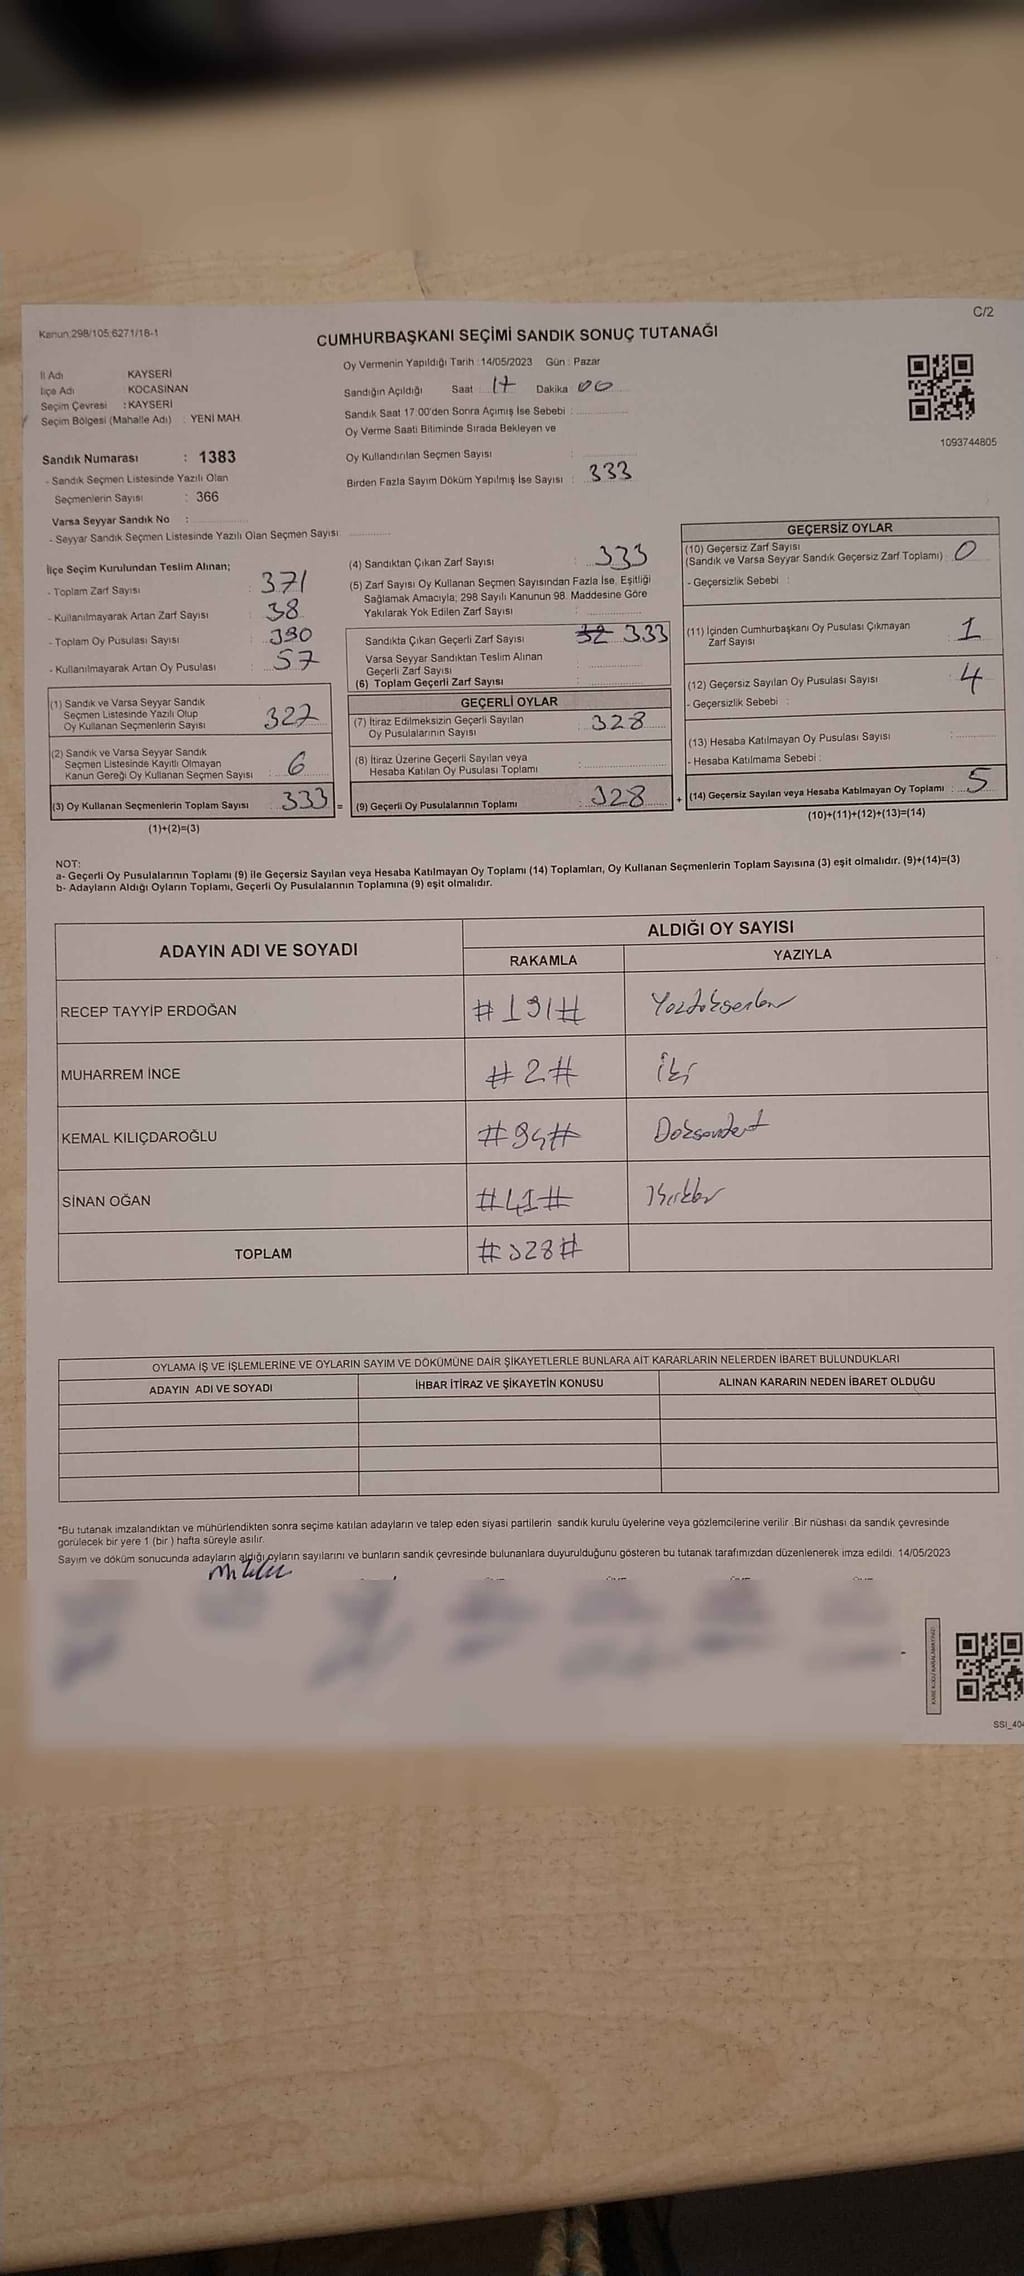 C/2
Kanun:298/105;6271/18-1
CUMHURBAŞKANI SEÇİMİ SANDIK SONUÇ TUTANAĞI
Oy Vermenin Yapıldığı Tarih : 14/05/2023 Gün : Pazar
İl Adı KAYSERİ
İlçe Adı : KOCASİNAN
Seçim Çevresi : KAYSERİ
Seçim Bölgesi (Mahalle Adı) : YENİ MAH.
Sandığın Açıldığı Saat : 17 Dakika 00
Sandık Saat 17:00'den Sonra Açımış İse Sebebi :
Oy Verme Saati Bitiminde Sırada Bekleyen ve
Oy Kullandırılan Seçmen Sayısı :
Birden Fazla Sayım Döküm Yapılmış İse Sayısı : 333
1093744805
Sandık Numarası : 1383
- Sandık Seçmen Listesinde Yazılı Olan
Seçmenlerin Sayısı : 366
Varsa Seyyar Sandık No :
- Seyyar Sandık Seçmen Listesinde Yazılı Olan Seçmen Sayısı
İlçe Seçim Kurulundan Teslim Alınan;
- Toplam Zarf Sayısı : 371
- Kullanılmayarak Artan Zarf Sayısı : 38
- Toplam Oy Pusulası Sayısı : 390
- Kullanılmayarak Artan Oy Pusulası : 57
(1) Sandık ve Varsa Seyyar Sandık
Seçmen Listesinde Yazılı Olup
Oy Kullanan Seçmenlerin Sayısı : 327
(2) Sandık ve Varsa Seyyar Sandık
Seçmen Listesinde Kayıtlı Olmayan
Kanun Gereği Oy Kullanan Seçmen Sayısı : 6
(3) Oy Kullanan Seçmenlerin Toplam Sayısı : 333 =
(1)+(2)=(3)
(4) Sandıktan Çıkan Zarf Sayısı : 333
(5) Zarf Sayısı Oy Kullanan Seçmen Sayısından Fazla İse, Eşitliği
Sağlamak Amacıyla; 298 Sayılı Kanunun 98. Maddesine Göre
Yakılarak Yok Edilen Zarf Sayısı :
Sandıkta Çıkan Geçerli Zarf Sayısı 32 333
Varsa Seyyar Sandıktan Teslim Alınan
Geçerli Zarf Sayısı :
(6) Toplam Geçerli Zarf Sayısı :
GEÇERLİ OYLAR
(7) İtiraz Edilmeksizin Geçerli Sayılan
Oy Pusulalarının Sayısı : 328
(8) İtiraz Üzerine Geçerli Sayılan veya
Hesaba Katılan Oy Pusulası Toplamı :
(9) Geçerli Oy Pusulalarının Toplamı : 328 +
GEÇERSİZ OYLAR
(10) Geçersiz Zarf Sayısı
(Sandık ve Varsa Seyyar Sandık Geçersiz Zarf Toplamı) : 0
- Geçersizlik Sebebi :
(11) İçinden Cumhurbaşkanı Oy Pusulası Çıkmayan
Zarf Sayısı : 1
(12) Geçersiz Sayılan Oy Pusulası Sayısı : 4
- Geçersizlik Sebebi :
(13) Hesaba Katılmayan Oy Pusulası Sayısı :
- Hesaba Katılmama Sebebi :
(14) Geçersiz Sayılan veya Hesaba Katılmayan Oy Toplamı : 5
(10)+(11)+(12)+(13)=(14)
NOT:
a- Geçerli Oy Pusulalarının Toplamı (9) ile Geçersiz Sayılan veya Hesaba Katılmayan Oy Toplamı (14) Toplamları, Oy Kullanan Seçmenlerin Toplam Sayısına (3) eşit olmalıdır. (9)+(14)=(3)
b- Adayların Aldığı Oyların Toplamı, Geçerli Oy Pusulalarının Toplamına (9) eşit olmalıdır.
ADAYIN ADI VE SOYADI ALDIĞI OY SAYISI
RAKAMLA YAZIYLA
RECEP TAYYİP ERDOĞAN #191# Yüzdoksanbir
MUHARREM İNCE #2# İki
KEMAL KILIÇDAROĞLU #94# Doksandört
SİNAN OĞAN #41# Kırkbir
TOPLAM #328#
OYLAMA İŞ VE İŞLEMLERİNE VE OYLARIN SAYIM VE DÖKÜMÜNE DAİR ŞİKAYETLERLE BUNLARA AİT KARARLARIN NELERDEN İBARET BULUNDUKLARI
ADAYIN ADI VE SOYADI İHBAR İTİRAZ VE ŞİKAYETİN KONUSU ALINAN KARARIN NEDEN İBARET OLDUĞU
*Bu tutanak imzalandıktan ve mühürlendikten sonra seçime katılan adayların ve talep eden siyasi partilerin sandık kurulu üyelerine veya gözlemcilerine verilir. Bir nüshası da sandık çevresinde
görülecek bir yere 1 (bir) hafta süreyle asılır.
Sayım ve döküm sonucunda adayların aldığı oyların sayılarını ve bunların sandık çevresinde bulunanlara duyurulduğunu gösteren bu tutanak tarafımızdan düzenlenerek imza edildi. 14/05/2023
SSI_40